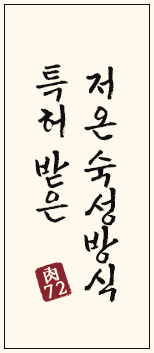 특허 받은
저온 숙성방식
肉
72